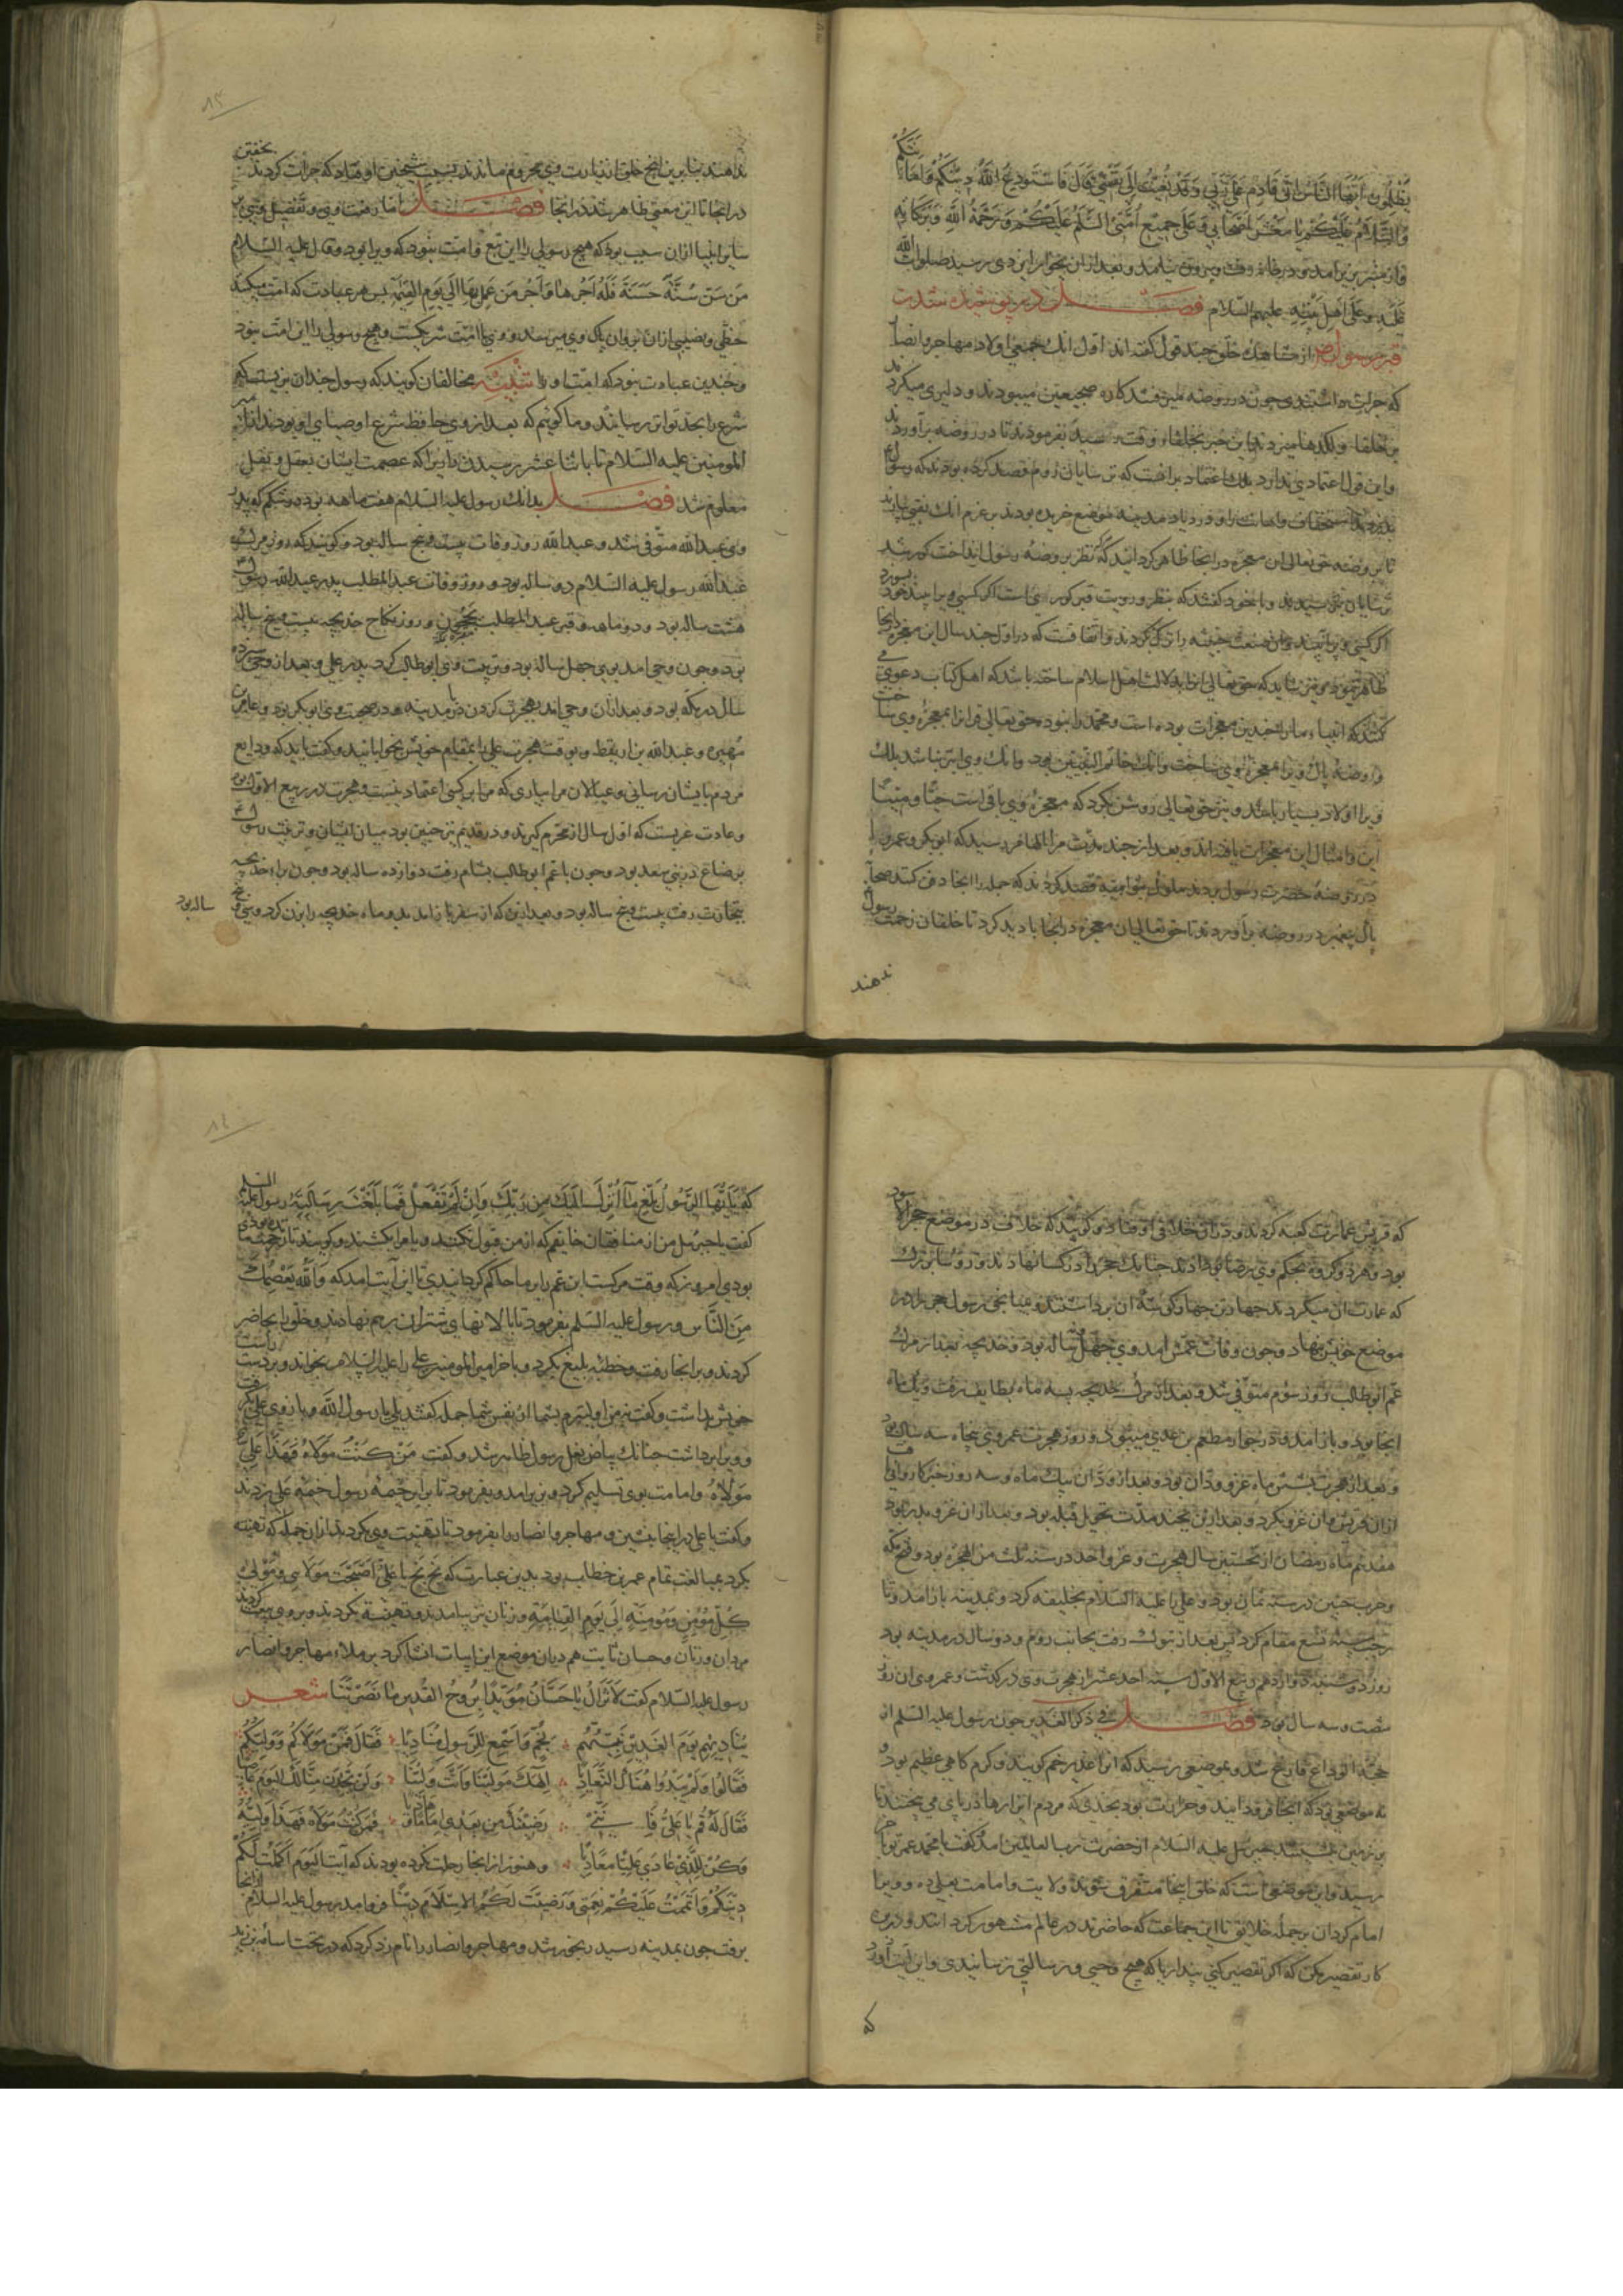 ایها الناس انی قادم علی ربی وقد نعیت الی نفسی فاستودع الله دینکم
والسلام علیکم یا معشر اصحابی وعلی جمیع امتی السلم علیکم ورحمة الله وبرکاته
واز منبر بزیر آمد و در خانه رفت وبیرون نیامد و بعد از آن بجوار ایزدی رسید صلوات الله
علیه وعلی اهل بیته علیهم السلام فصل در پوشیده شدن
قبر رسول از مشاهده خلق چند قول گفته‌اند اول انک جمعی اولاد مهاجر وانصار
که جرات داشتندی چون در روضه ضجیعین میبودند و دلیری میکردند
واین قول اعتمادی ندارد بلک اعتماد بر انست که ترسایان روم قصد کرده بودند که رسول
مدینه موضع خریده بودند بر عزم انک نقبی
تا بروضه حق تعالی این معجزه در انجا ظاهر کردانید که نظر بروضه رسول انداخت کور شد
وبا خود گفتند که
اگر کسی ویرا راترک کردند واتفاقست که در اول چند سال این معجزه انجا
شاید که حق تعالی اهل اسلام ساخته باشد که اهل کتاب دعوی
کنند که انبیاء ما را چندین معجزات بوده است و محمد را نبود حق تعالی قبر او را معجزه وی ساخت
وروضه پاک ویرا معجزه وی ساخت وانک خاتم النبیین بود وانک وی ابتر نباشد بلک
ویرا اولاد بسیار باشد ونیز حق تعالی روشن بکرد که معجزه وی باقی است حیا ومیتا
این وامثال این معجزات یافته‌اند وبعد از چند مدت مرا الهام رسید که ابو بکر وعمر را
در روضه حضرت رسول بردند ملوک بنو امیه قصد کردند که جمله را انجا دفن کنند صحابه
پیغمبر در روضه براوردند تا حق تعالی ان معجزه در انجا بادید کرد تا خلقان زحمت رسول
ندهند
ندهند بنابرین انچ خلق از زیارت وی محروم ماندند بسبب شیخین افتاد که جرات کردند بخفتن
در انجا تا این معنی ظاهر شد در انجا فصل اما رفعت وی وتفضیل وی بر
سایر انبیا ازان سبب بود که هیچ رسولی را این تبع وامت نبود که ویرا بود وقال علیه السلام
من سن سنة حسنة فله اجرها واجر من عمل بها الی یوم القیمة پس هر عبادت که امت میکند
حظی ونصیبی ازان بروان پاک وی میرسد ووی با امت شریکست وهیچ رسولی را این امت نبود
وچندین عبادت نبود که امت او را تنبیه مخالفان گویند که رسول چندان بزیست که
شرع را بحد تواتر رسانید وما گوئیم که بعد از وی حافظ شرع اوصیای او بودند از امیر
المومنین علیه السلام تا باثنا عشر رسیدن زیرا که عصمت ایشان بعقل ونقل
معلوم شد فصل بدانک رسول علیه السلام هفت ماهه بود در شکم که پدر
وی عبدالله متوفی شد وعبدالله روز وفات بیست وپنج ساله بود وگویند که روز مرگ
عبدالله رسول علیه السلام دو ساله بود وروز وفات عبدالمطلب پدر عبدالله رسول
هشت ساله بود ودو ماهه وقبر عبدالمطلب بحجون وروز نکاح خدیجه بیست وپنج ساله
بود وچون وحی امد بوی چهل ساله بود وتربیت وی ابوطالب کرد پدر علی وبعد از وحی سیزده
سال در مکه بود وبعد ازان وحی امد بهجرت کردن با مدینه ودر صحبت وی ابو بکر بود وعامر بن
فهیره وعبدالله بن اریقط وبوقت هجرت علی را بمقام خویش بخوابانید وگفت باید که ودایع
مردم بایشان رسانی وعیالان مرا بیاری که مرا بر کسی اعتماد نیست وهجرت در ربیع الاول بود
وعادت عربست که اول سال از محرم گیرند ودر قدیم نیز چنین بود میان ایشان وتربیت رسول
برضاع در بنی سعد بود وچون با عم ابوطالب بشام رفت دوازده ساله بود وچون برای خدیجه
بتجارت رفت بیست وپنج ساله بود وبعد ازین که از سفر باز امد بدو ماه خدیجه را بزن کرد وسی وپنج
ساله بود
که قریش عمارت کعبه کردند ودران خلاف افتاد وگویند که خلاف در موضع حجر اسود
بود وهر دو گروه بحکم وی رضا دادند چنانک حجر را در کسا نهادند ورؤسا بزرگ
که عمارت ان میکردند چهار تن چهار گوشه ان برداشتند ومیانجی رسول حجر را در
موضع خویش نهاد وچون وفات عمش امد وی چهل ساله بود وخدیجه بعد از مرگ
عم ابوطالب روز سوم متوفی شد وبعد از مرگ خدیجه بسه ماه بطایف رفت ویک ماه
انجا بود وباز امد ودر جوار مطعم بن عدی میبود وروز هجرت عمر وی پنجاه سه سال بود
وبعد از هجرت بشش ماه غزو ودان بود وبعد از ودان بیک ماه وسه روز
ازان قریش غزو بکرد وبعد ازین بچند مدت تحویل قبله بود وبعد ازان غزو بدر بود
هفدهم ماه رمضان از نخستین سال هجرت وغزو احد در سنه ثلث من الهجره بود وفتح مکه
وحرب حنین در سنه ثمان بود وعلی را علیه السلام بخلیفه کرد وبمدینه باز امد وتا
رجب سنه تسع مقام کرد پس بعد از تبوک رفت بجانب روم ودو سال در مدینه بود
روز دوشنبه دوازدهم ربیع الاول سنه احد عشر از هجرت وی در گذشت وعمر وی ان روز
شصت وسه سال بود فصل فی ذکر الغدیر چون رسول علیه السلم از
حجة الوداع فارغ شد وبموضعی رسید که انرا غدیر خم گویند وگرم گاهی عظیم بود
نه موضعی بود که انجا فرود ایند وحرارت بود بحدی که مردم ازارها در پای می پیختند تا
بر زمین جبرئیل علیه السلام از حضرت رب العالمین امد گفت یا محمد عمر تو باخر
رسید واین موضعی است که خلق اینجا متفرق شوند ولایت وامامت بعلی ده وویرا
امام گردان بر جمله خلایق تا این جماعت که حاضرند در عالم مشهور گردانند ودرین
کار تقصیر مکن که اگر تقصیر کنی پنداریا که هیچ وحیی ورسالتی نرسانیدی واین آیت آورد
که
که یا ایها الرسول بلغ ما انزل الیک من ربک وان لم تفعل فما بلغت رسالته رسول علیه السلم
گفت یا جبرئیل من از منافقان خایفم که از من قبول نکنند ویا مرا بکشند وگویند تا
بودی امروز که وقت مرگست ابن عم را بر ما حاکم گردانیدی تا این آیت امد که والله یعصمک
من الناس ورسول علیه السلم بفرمود تا پالانهای شتران برهم نهادند وخلق را حاضر
کردند وبر انجا رفت وخطبه بلیغ بکرد وباخر امیر المومنین علی را علیه السلام بخواند وبر دست راست
خویش بداشت وگفت نه من اولیترم بشما از نفس شما جمله گفتند بلی یا رسول الله وبازوی علی بگرفت
وویرا برداشت چنانک بیاض بغل رسول ظاهر شد وگفت من کنت مولاه فهذا علی
مولاه وامامت بوی تسلیم کرد وبزیر امد وبفرمود تا برابر خیمه رسول خیمه علی بزدند
وگفت یا علی در اینجا بنشین ومهاجر وانصار را بفرمود تا تهنیت وی کردند ازان جمله که تهنیت
بکرد بمبالغت تمام عمر بن خطاب بود بدین عبارت که بخ بخ یا علی اصبحت مولای ومولی
کل مؤمن ومؤمنة الی یوم القیامة وزنان نیز بیامدند وتهنیة بکردند وبر وی بیعت کردند
مردان وزنان وحسان ثابت هم دران موضع این ابیات انشا کرد بر ملاء مهاجر وانصار
رسول علیه السلام گفت لا تزال یا حسان مؤیدا بروح القدس ما نصرتنا شعر
ینادیهم یوم الغدیر نبیهم بخم واسمع للرسول منادیا فقال فمن مولاکم وولیکم
فقالوا ولم یبدوا هناک التعادیا الهک مولینا وانت ولینا ولن تجدن منا لک الیوم عاصیا
فقال له قم یا علی فاننی رضیتک من بعدی اماما وهادیا فمن کنت مولاه فهذا ولیه
وکن للذی عادی علیا معادیا وهنوز از انجا رحلت نکرده بودند که آیت الیوم اکملت لکم
دینکم واتممت علیکم نعمتی ورضیت لکم الاسلام دینا فرو امد رسول علیه السلام از انجا
برفت چون بمدینه رسید رنجور شد ومهاجر وانصار را نام زد کرد که در تحت اسامة بن زید